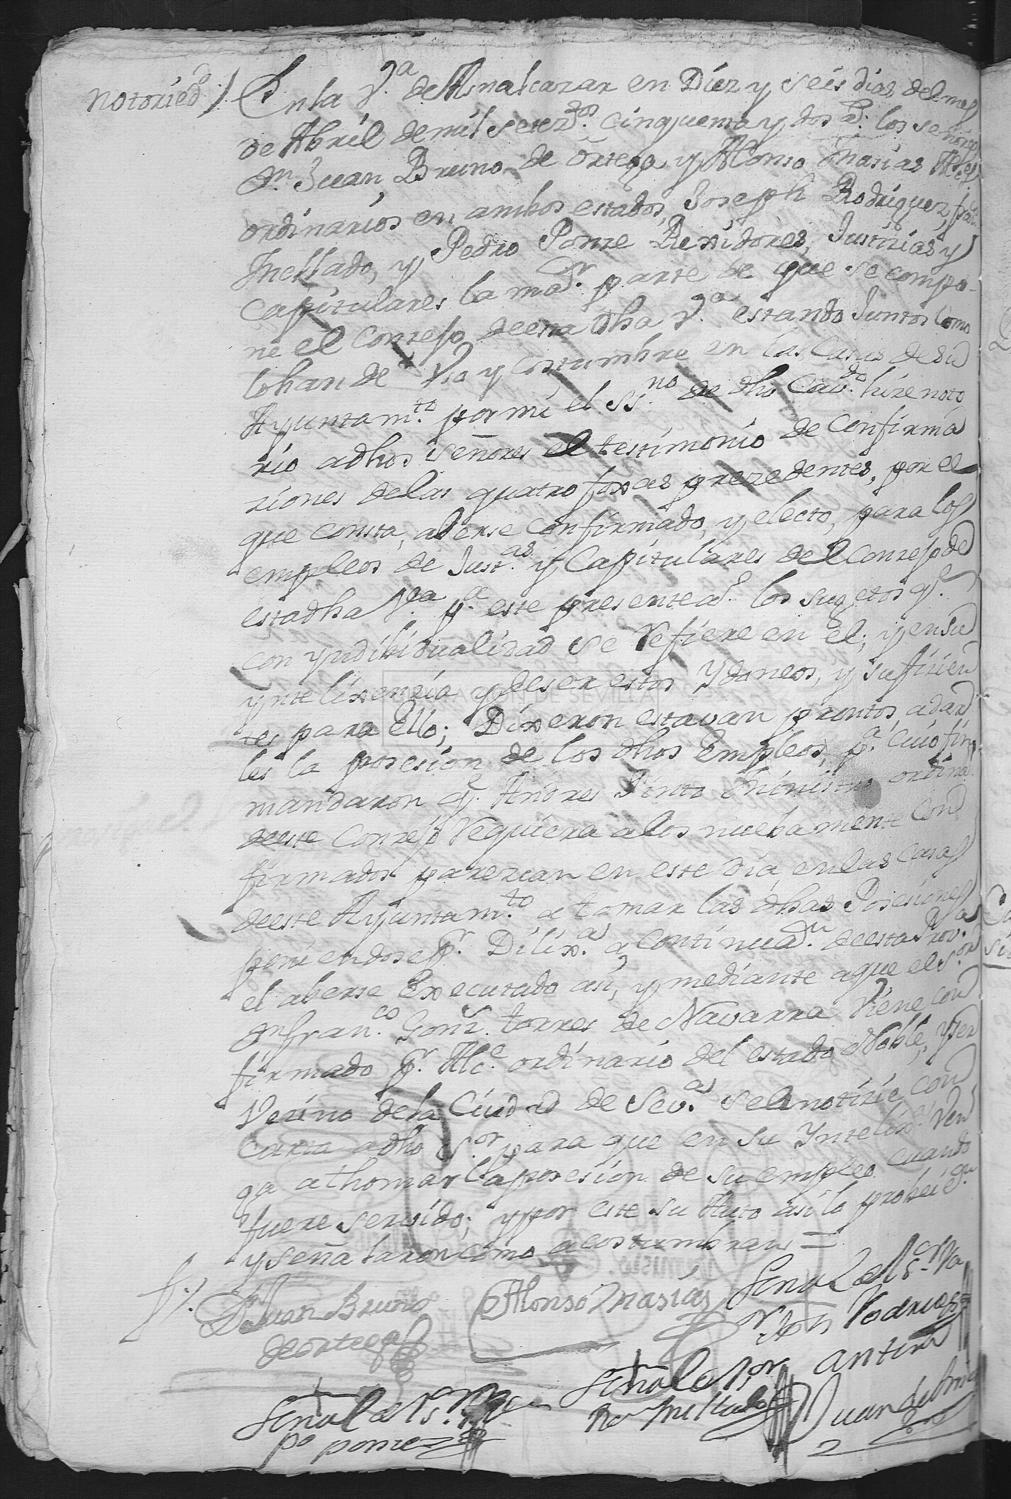 notoried.d / En la V.a de Asnalcazar en Diez y seis dias del mes
de Abril de mil setez.dos cinquenta y dos a.s los señores
Dn Juan Bruno de ortega y Alonso Masias Al.des
ordinarios en ambos estados, Joseph Rodriguez,
Mellado, y Pedro Ponze Rexidores, Justizias y
Capitulares la ma.r parte de que se compo-
ne el Consejo de esta dha V.a estando Juntos como
lo han de Uso y costumbre en las Casas de su
Ayuntam.to por mi el SS.no de dho Cav.do hize noto
rio a dhos señores el testimonio de Confirma
ziones de las quatro foxas prezedentes, por el
que consta, aberse confirmado, y electo, para los
empleos de Just.as y Capitulares del Consejo de
esta dha V.a p.a este presente a.o los sugetos q.e
con yndibidualidad se refiere en el; y en su
ynteligenzia y de ser estos Ydoneos, y sufizien
tes para Ello; Dixeron estavan prontos, a dar
les la posesion de los dhos Empleos, p.a cuio fin
mandaron q.e Andres Pinto Ministro ordina.
de este Consejo Requiera a los nuebamente Con
firmados parezcan en este Dia en las casas
de este Ayuntam.to a tomar las dhas Posesiones
poniendose p.r Dilix.a a continuaz.n de esta Prov.a
el aberse Executado asi, y mediante a que el S.or
Dn Fran.co Gonz. torres de Navarra Viene con
firmado p.r Alc.e ordinario del estado Noble, y ser
Vezino de la Ciudad de Sev.a se le notizie con
Carta a dho S.or para que en su Yntelix.a Ven
ga a thomar la posesion de su empleo cuando
fuere servido; y por este su Auto asi lo probei.n
y señalaron como acostumbran =
Juan Bruno Alonso Masias Señal del S.r
de ortega Rodriguez
Señal del S.r Señal del S.r ante mi
p.o ponze Mellado Juan